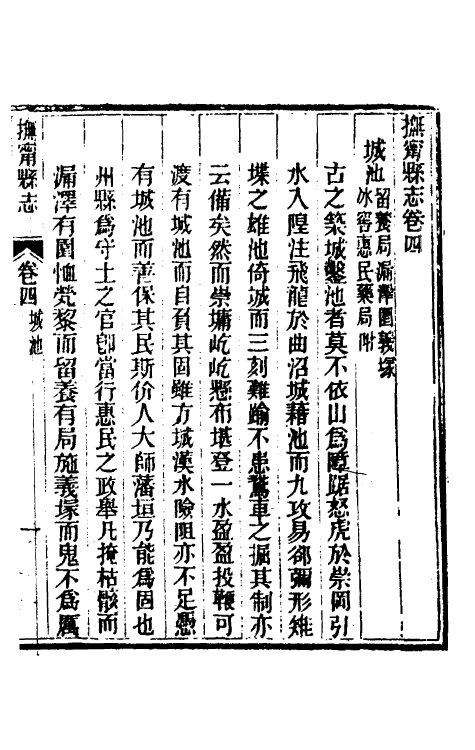 撫甯縣志卷四
城池 留養局漏澤園義塚
冰窖惠民藥局附
古之築城鑿池者莫不依山爲障踞怒虎於崇岡引
水入隍注飛龍於曲沼城藉池而九攻易郤彌形雉
堞之雄池倚城而三刻難踰不患鵞車之掘其制亦
云備矣然而崇墉屹屹懸布堪登一水盈盈投鞭可
渡有城池而自負其固雖方城漢水險阻亦不足憑
有城池而善保其民斯价人大師藩垣乃能爲固也
州縣爲守土之官卽當行惠民之政舉凡掩枯骸而
漏澤有園恤煢黎而留養有局施義塚而鬼不爲厲
撫甯縣志
卷四 城池